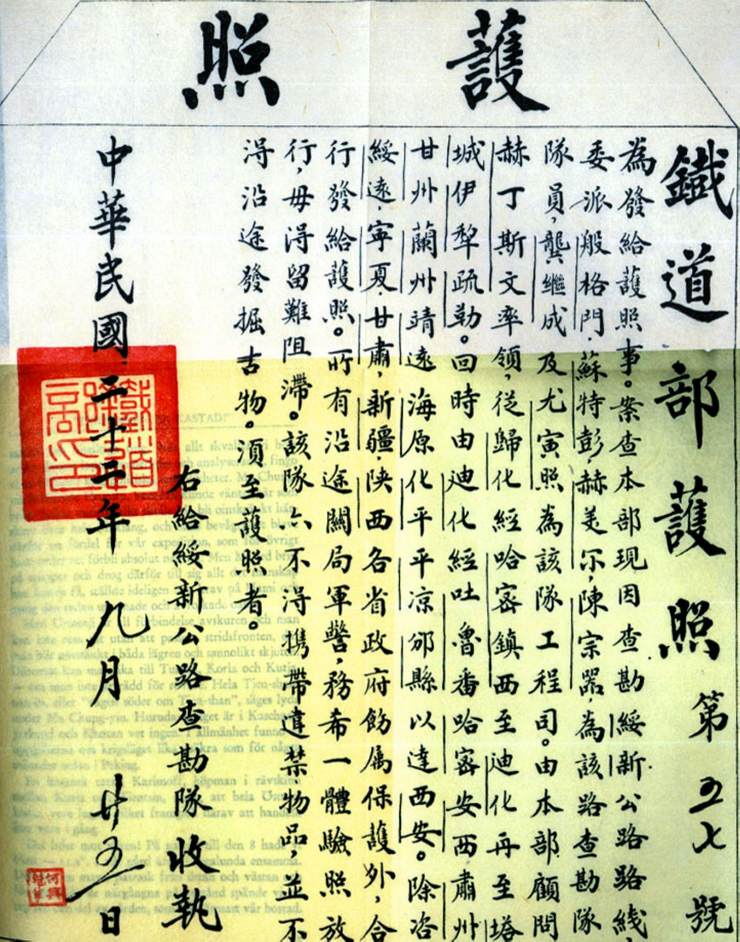 護照
鐵道部護照第五七號
為發給護照事。案查本部現因查勘綏新公路路綫
委派般格門·蘇特彭赫美尔，陳宗器，為該路查勘隊
隊員，龔繼成及尤寅照為該隊工程司。由本部顧問
赫丁斯文率領，從歸化經哈密鎮西至迪化再至塔
城伊犁疏勒。回時由迪化經吐魯番哈密安西肅州
甘州蘭州靖遠海原化平平凉邠縣以達西安。除咨
綏遠·寧夏·甘肅·新疆陝西各省政府飭屬保護外，合
行發給護照。所有沿途關局軍警，務希一體驗照放
行，毋得留難阻滯。該隊亦不得携帶違禁物品，並不
淂沿途發掘古物。須至護照者。
右給綏新公路查勘隊收執
中華民國二十二年九月廿五日